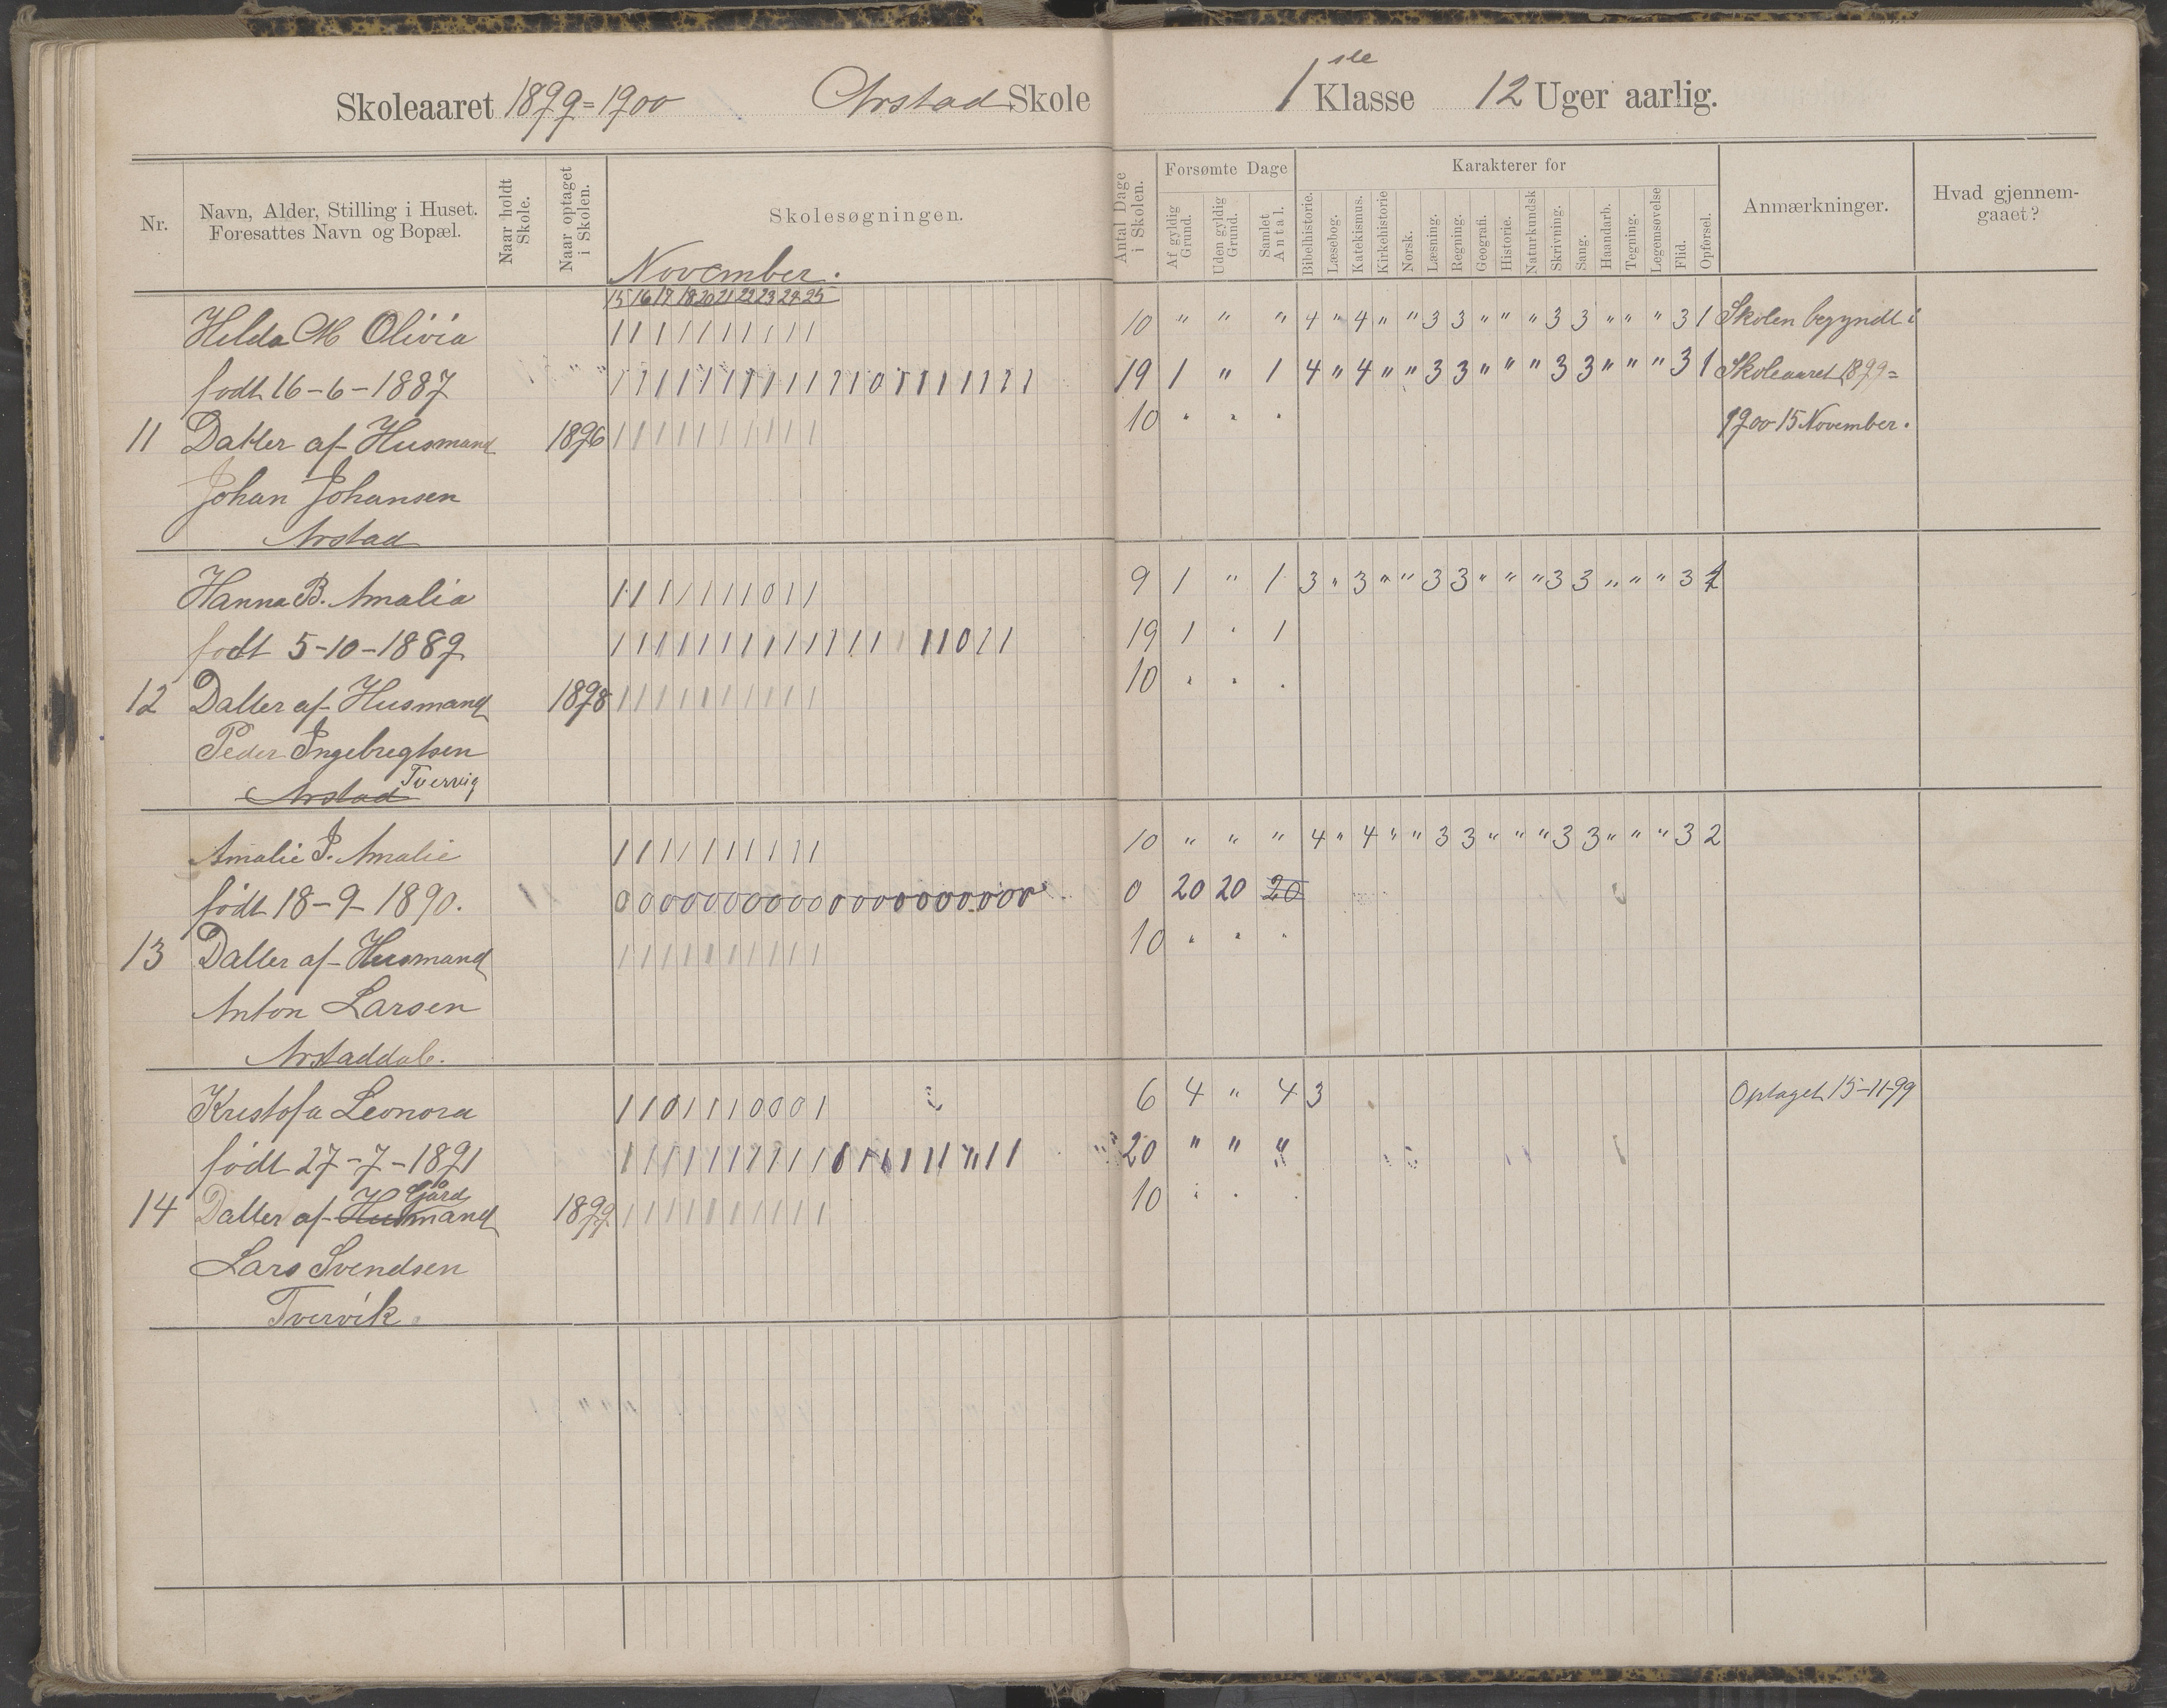 Skoleaaret 1899=1900 Arstad Skole 1ste Klasse 12 Uger aarlig.
Nr.
Navn, Alder, Stilling i Huset.
Foresattes Navn og Bopæl.
Naar holdt
Skole.
Naar optaget
i Skolen.
Skolesøgningen.
November.
15 16 17 18 20 21 22 23 24 25
Antal Dage
i Skolen.
Forsømte Dage
Af gyldig
Grund.
Uden gyldig
Grund.
Samlet
Antal.
Karakterer for
Bibelhistorie.
Læsebog.
Katekismus.
Kirkehistorie
Norsk.
Læsning.
Regning.
Geografi.
Historie.
Naturkundsk
Skrivning.
Sang.
Haandarb.
Tegning.
Legemsøvelse
Flid.
Opførsel.
Anmærkninger.
Hvad gjennem-
gaaet?
Helda M Olivia 1 1 1 1 1 1 1 1 1 1 10 " " " 4 " 4 " " 3 3 " " " 3 3 " " " 3 1 Skolen begyndt i
født 16-6-1887 1 1 1 1 1 1 1 1 1 1 1 1 0 1 1 1 1 1 1 1 19 1 " 1 4 " 4 " " 3 3 " " " 3 3 " " " 3 1 Skoleaaret 1899=
11 Datter af Husmand 1896 1 1 1 1 1 1 1 1 1 1 10 " " " 1900 15 November.
Johan Johansen
Arstad
Hanna B. Amalia 1 1 1 1 1 1 1 0 1 1 9 1 " 1 3 " 3 " " 3 3 " " " 3 3 " " " 3
født 5-10-1889 1 1 1 1 1 1 1 1 1 1 1 1 1 1 1 1 0 1 1 19 1 " 1
12 Datter af Husmand 1898 1 1 1 1 1 1 1 1 1 1 10 " " "
Peder Ingebregtsen
Arstad Tvervig
Amalie J. Amalie 1 1 1 1 1 1 1 1 1 1 10 " " " 4 " 4 " " 3 3 " " " 3 3 " " " 3 2
født 18-9-1890. 0 0 0 0 0 0 0 0 0 0 0 0 0 0 0 0 0 0 0 0 0 20 20 20
13 Datter af Husmand 1 1 1 1 1 1 1 1 1 1 10 " " "
Anton Larsen
Arstaddal.
Kristofa Leonora 1 1 0 1 1 1 0 0 0 1 6 4 " 4 3 Optaget 15-11-99
født 27-7-1891 1 1 1 1 1 1 1 1 1 1 1 1 1 1 1 1 1 1 1 20 " " "
14 Datter af Husmand Gård 1899 1 1 1 1 1 1 1 1 1 1 10 " " "
Lars Svendsen
Tvervik.